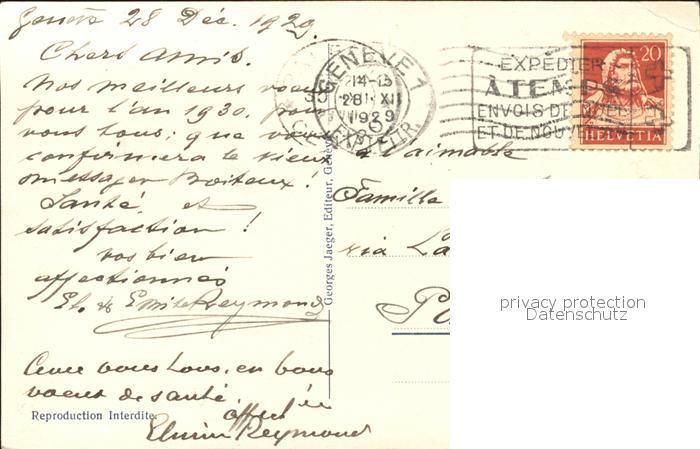 Genève 28 Déc. 1929
Chers Amis.
Nos meilleurs voeux
pour l'an 1930. pour
vous tous: que vous
confirmera le vieux
messager Boiteux!
Santé et
satisfaction!
vos bien
affectionnés
El. & Emile Reymond
Avec vous tous, en bons
voeux de santé
Edwin Reymond
Reproduction Interdite.
Georges Jaeger, Editeur, Genève
GENÈVE 1
14-15
28 XII
1929
EXPEDIER
À TEMPS
ENVOIS DE NOËL
ET DE NOUVEL
20
HELVETIA
L'aimable
Famille
via La
privacy protection
Datenschutz